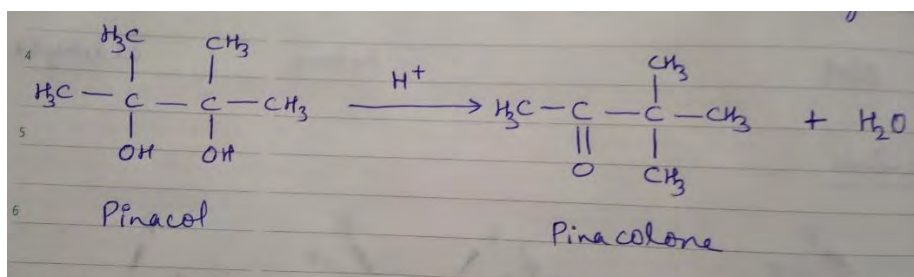 H₃C CH₃ CH₃
4
H₃C — C — C — CH₃ H⁺ → H₃C — C — C — CH₃ + H₂O
5
OH OH O CH₃
6
Pinacol Pinacolone